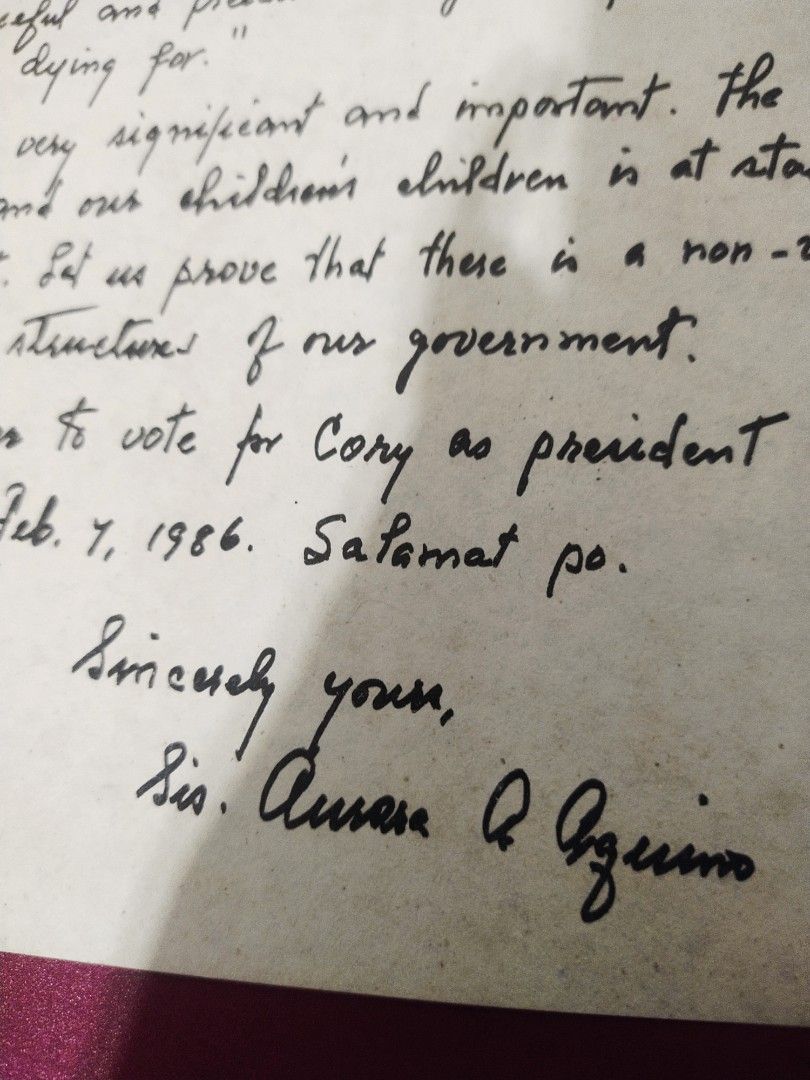 and
dying for."
very significant and important. The
and our children's children is at
Let us prove that there is a non-
structures of our government.
to vote for Cory as president
Feb. 7, 1986. Salamat po.
Sincerely yours,
Sis. Aurora A Aquino